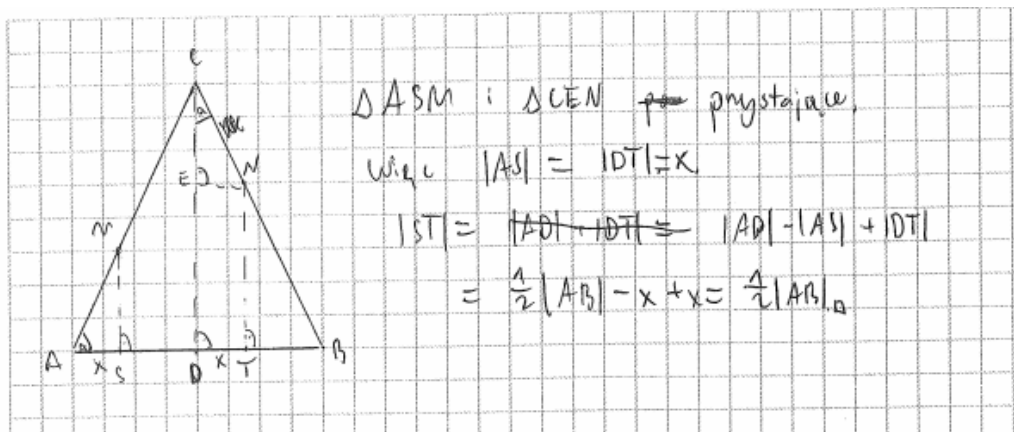 C
a
E
N
M
A
a
x
S
D
x
T
B
Δ ASM i Δ CEN przystające.
Więc |AS| = |DT| = x
|ST| = |AD| + |DT| = |AD| - |AS| + |DT|
= 1/2 |AB| - x + x = 1/2 |AB|. □